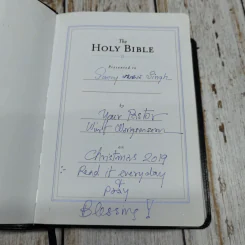 The
HOLY BIBLE
Presented to
Singh
by
Your Pastor
on
Christmas 2019
Read it everyday
&
pray
Blessings!